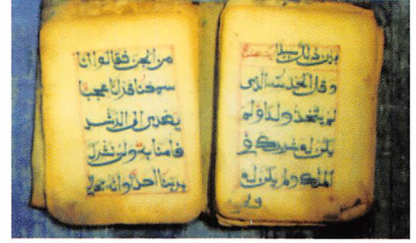 بين ذلك سبيلا
و قل الحمد لله الذي
لم يتخذ ولدا و لم
يكن له شريك في
الملك و لم يكن له
و لي
من الجن فقالوا انا
سمعنا قرانا عجبا
يهدي الى الرشد
فامنا به ولن نشرك
بربنا احدا وانه تعالى